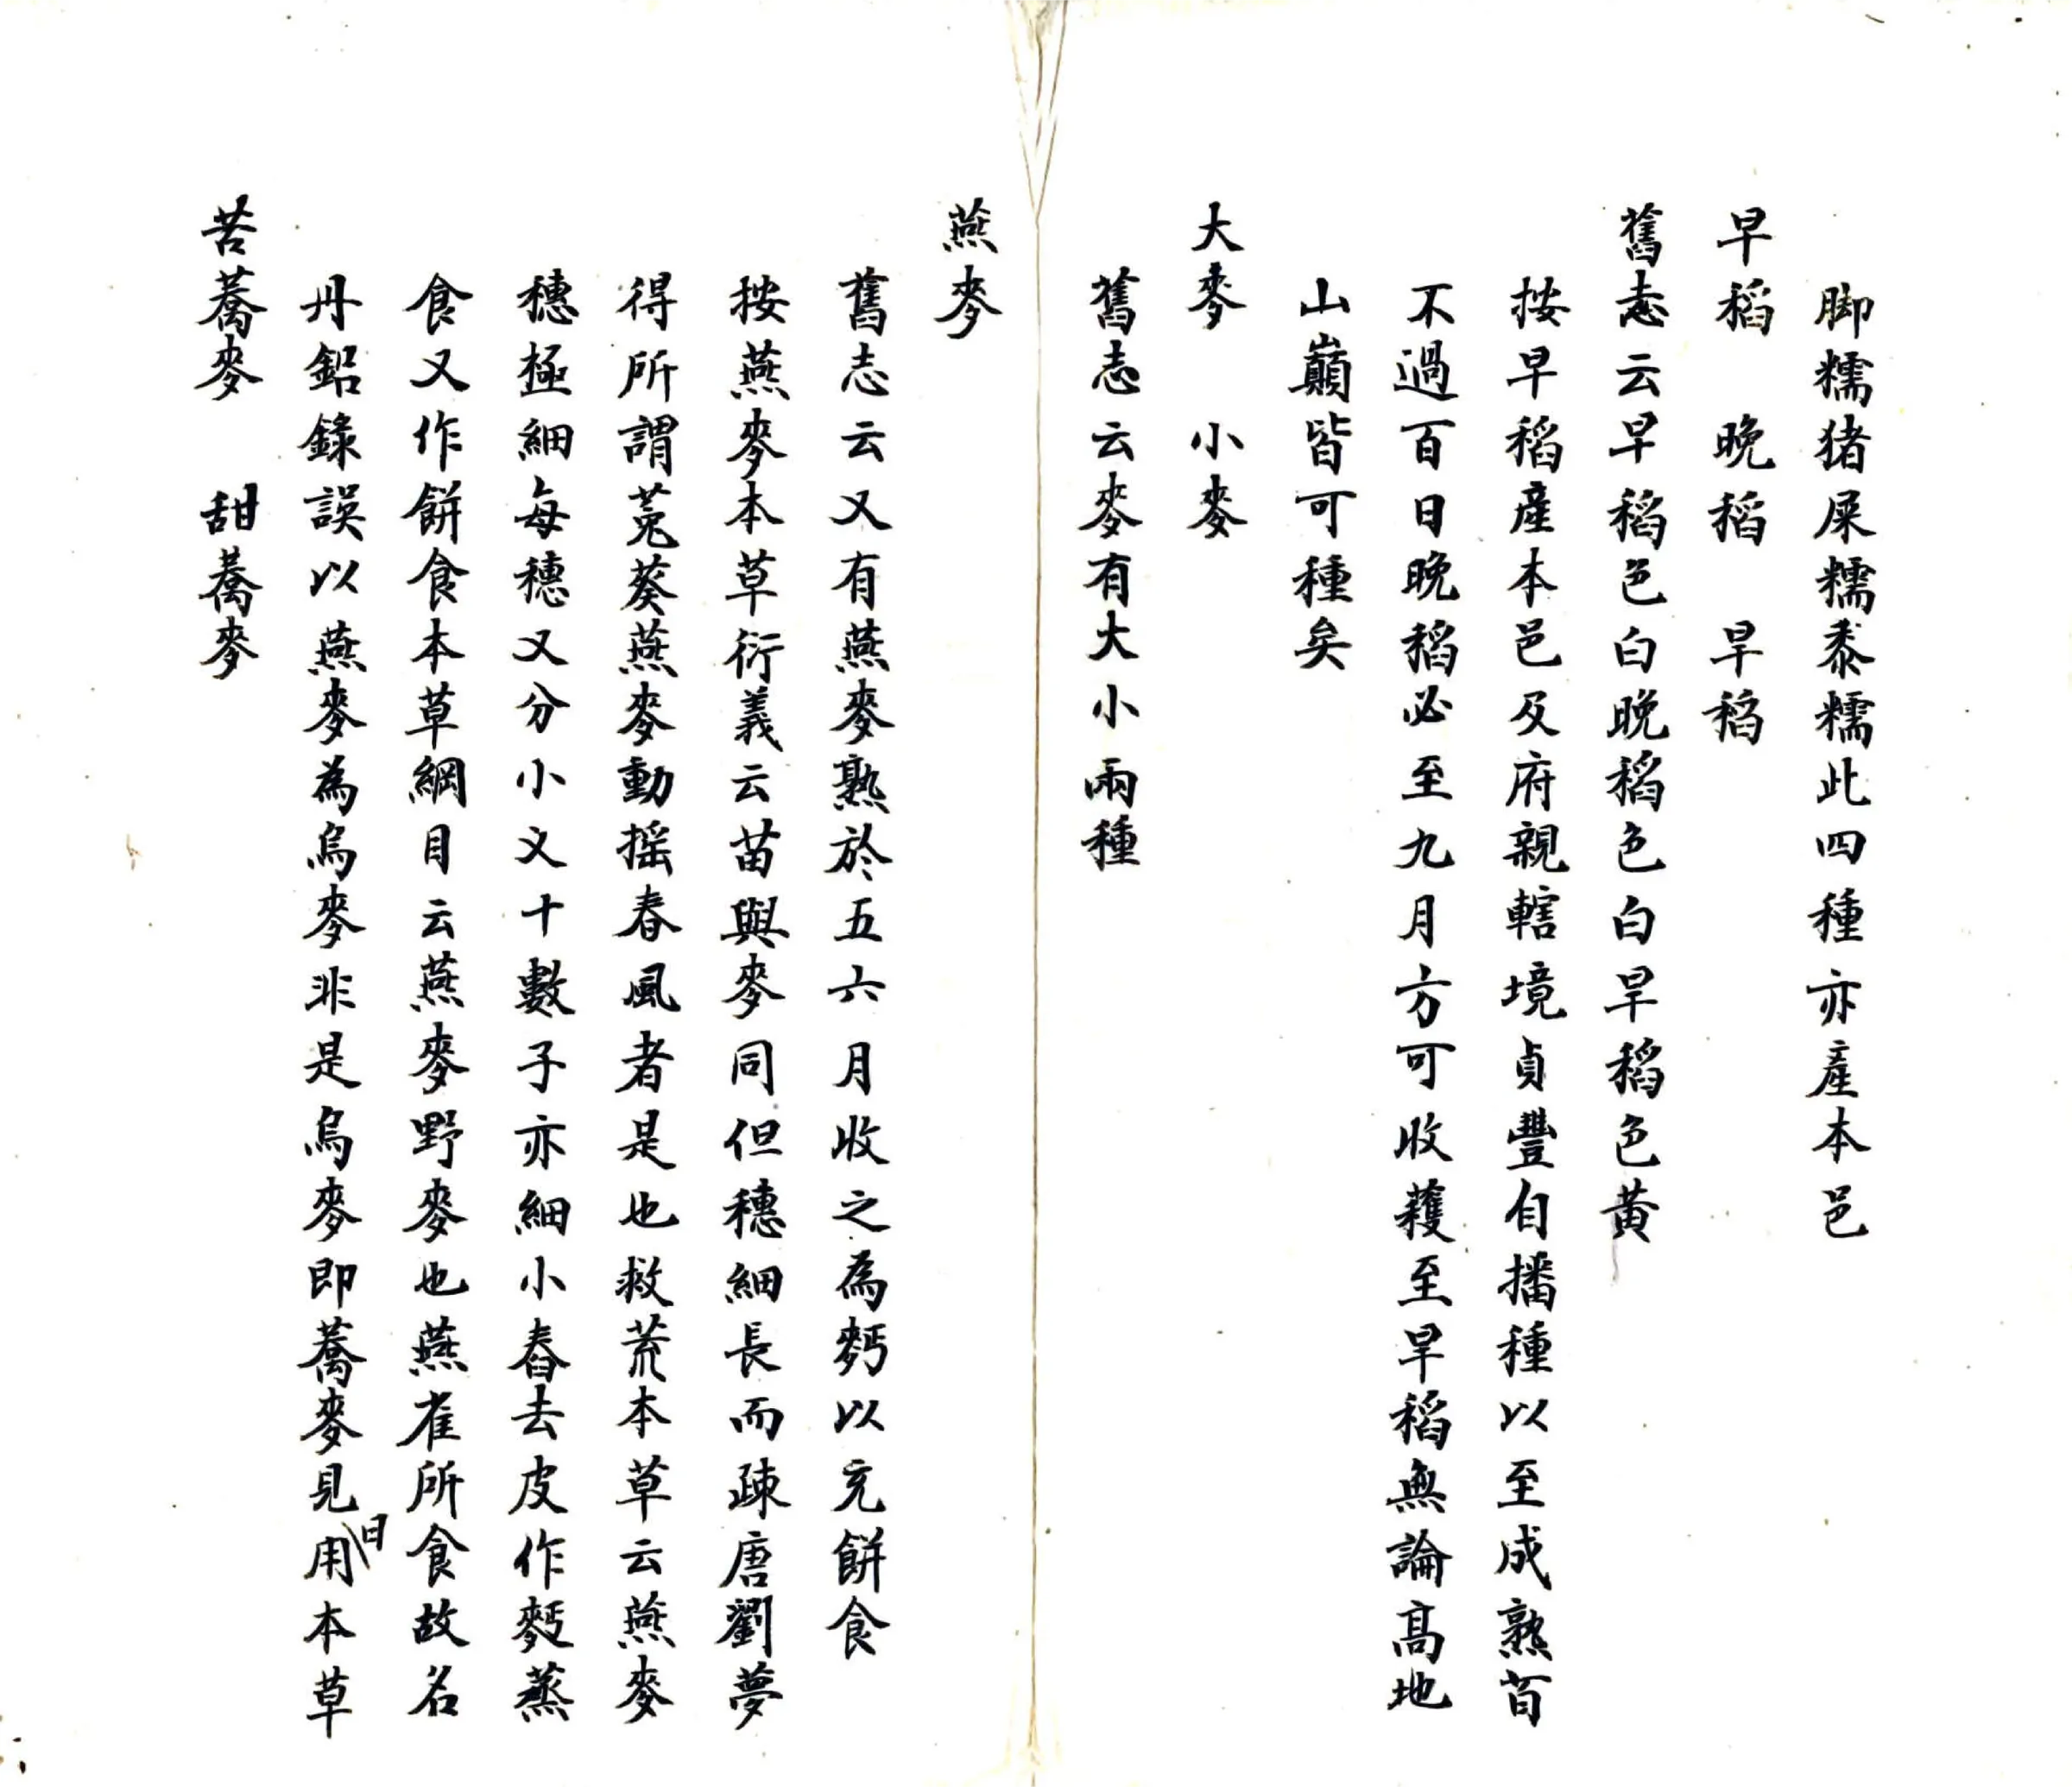 脚糯猪屎糯黍糯此四種亦產本邑
早稻　晚稻　旱稻
舊志云早稻色白晚稻色白旱稻色黄
按早稻產本邑及府親轄境貞豐自播種以至成熟苜
不過百日晚稻必至九月方可收蓰至旱稻無論髙地
山巔皆可種矣
大麥　小麥
舊志云麥有大小兩種
燕麥
舊志云又有燕麥熟於五六月收之為麪以充餅食
按燕麥本草衍義云苗與麥同但穗細長而疎唐劉夢
得所謂菟葵燕麥動摇春風者是也救荒本草云燕麥
穗極細每穗又分小义十數子亦細小舂去皮作麪蒸
食又作餅食本草綱目云燕麥野麥也燕雀所食故名
丹鉛錄誤以燕麥為烏麥非是烏麥即蕎麥見日用本草
苦蕎麥　甜蕎麥